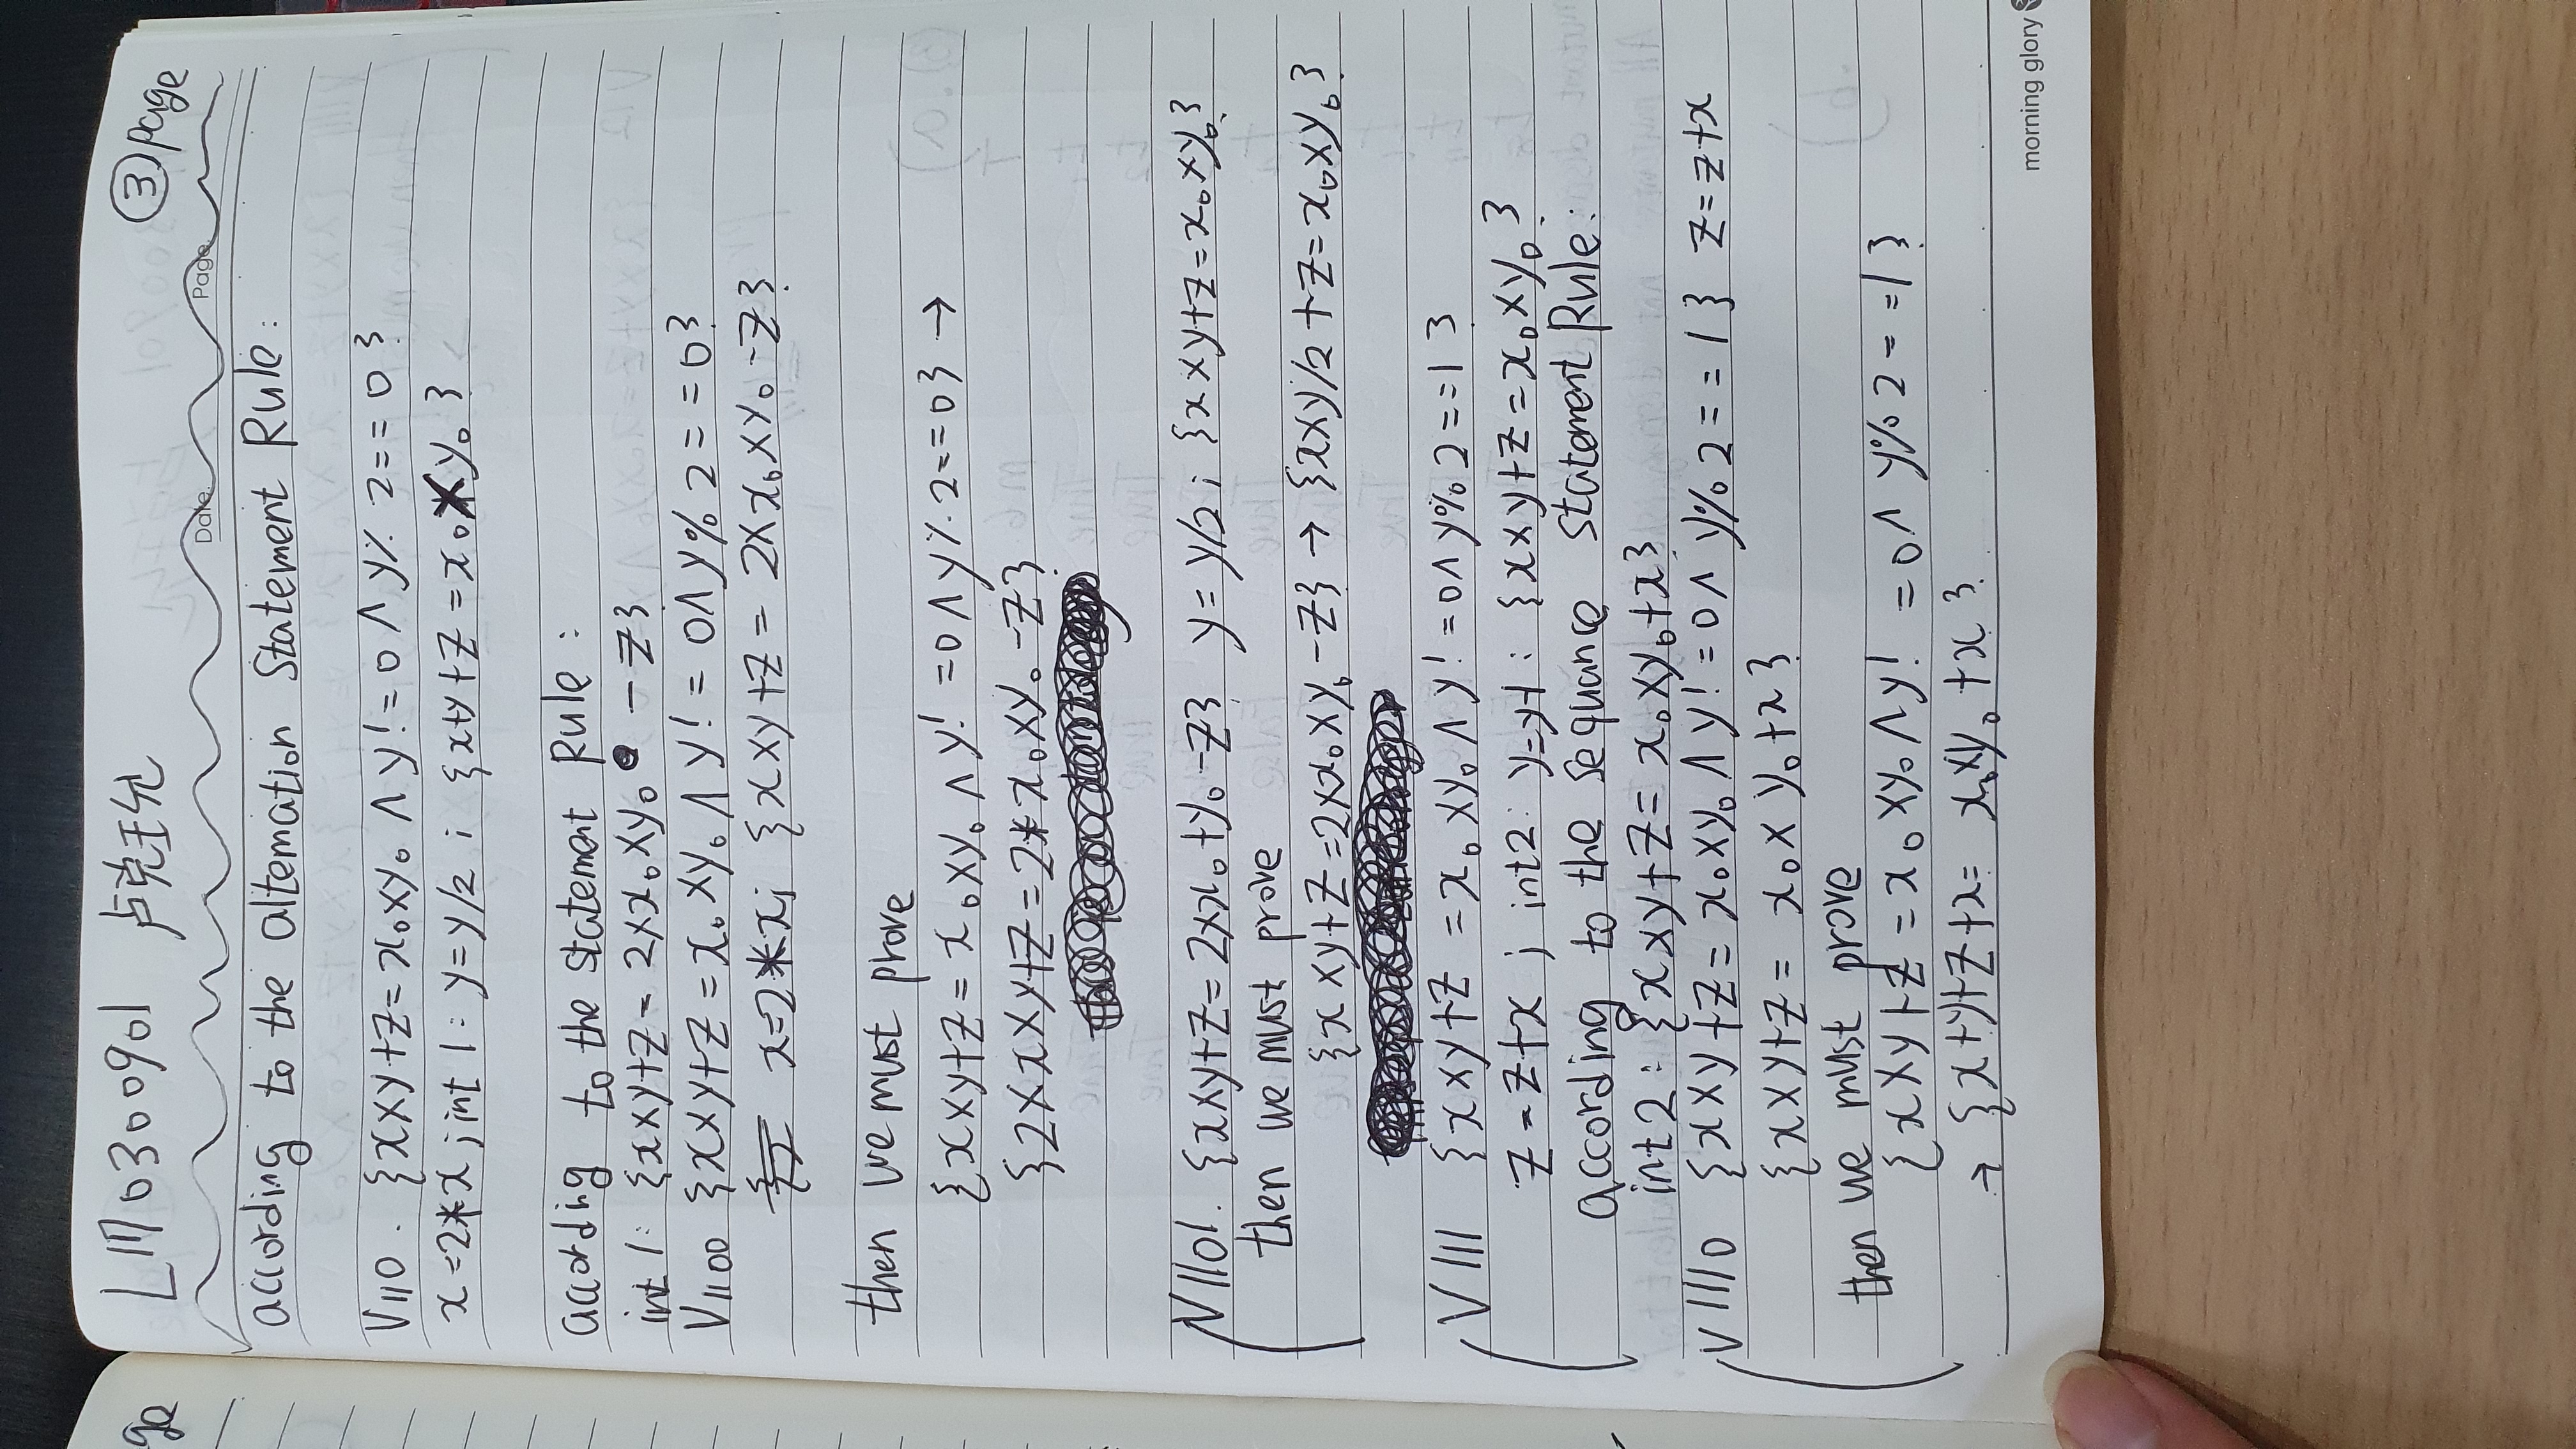 LM0300901 卢克王允 ③page
Date. Page.
according to the alternation Statement Rule:
V110. {x×y+z=x₀×y₀ ∧ y!=0 ∧ y% 2==0}
x=2*x ; int 1: y=y/2 ; {x+y+z=x₀×y₀}
according to the statement Rule:
int 1: {x×y+z= 2×x₀×y₀ -z}
V1100 {x×y+z=x₀×y₀ ∧ y!=0∧y% 2==0}
x=2*x; {x×y+z= 2×x₀×y₀-z}
then we must prove
{x×y+z=x₀×y₀ ∧ y!=0∧y% 2==0} →
{2×x×y+z=2*x₀×y₀-z}
V1101. {x×y+z=2×x₀+y₀-z} y=y/2 ; {x×y+z=x₀×y₀}
then we must prove
{x×y+z=2×x₀×y₀-z} → {x×y/2+z=x₀×y₀}
V111 {x×y+z=x₀×y₀∧y!=0∧y% 2==1}
z=z+x ; int2: y=y-1 ; {x×y+z=x₀×y₀}
according to the sequance statement Rule:
int2: {x×y+z=x₀×y₀+x}
V1110 {x×y+z=x₀×y₀∧y!=0∧y% 2==1} z=z+x
{x×y+z= x₀×y₀+x}
then we must prove
{x×y+z=x₀×y₀∧y!=0∧ y% 2==1}
→ {x+y+z+x= x₀×y₀+x}
morning glory